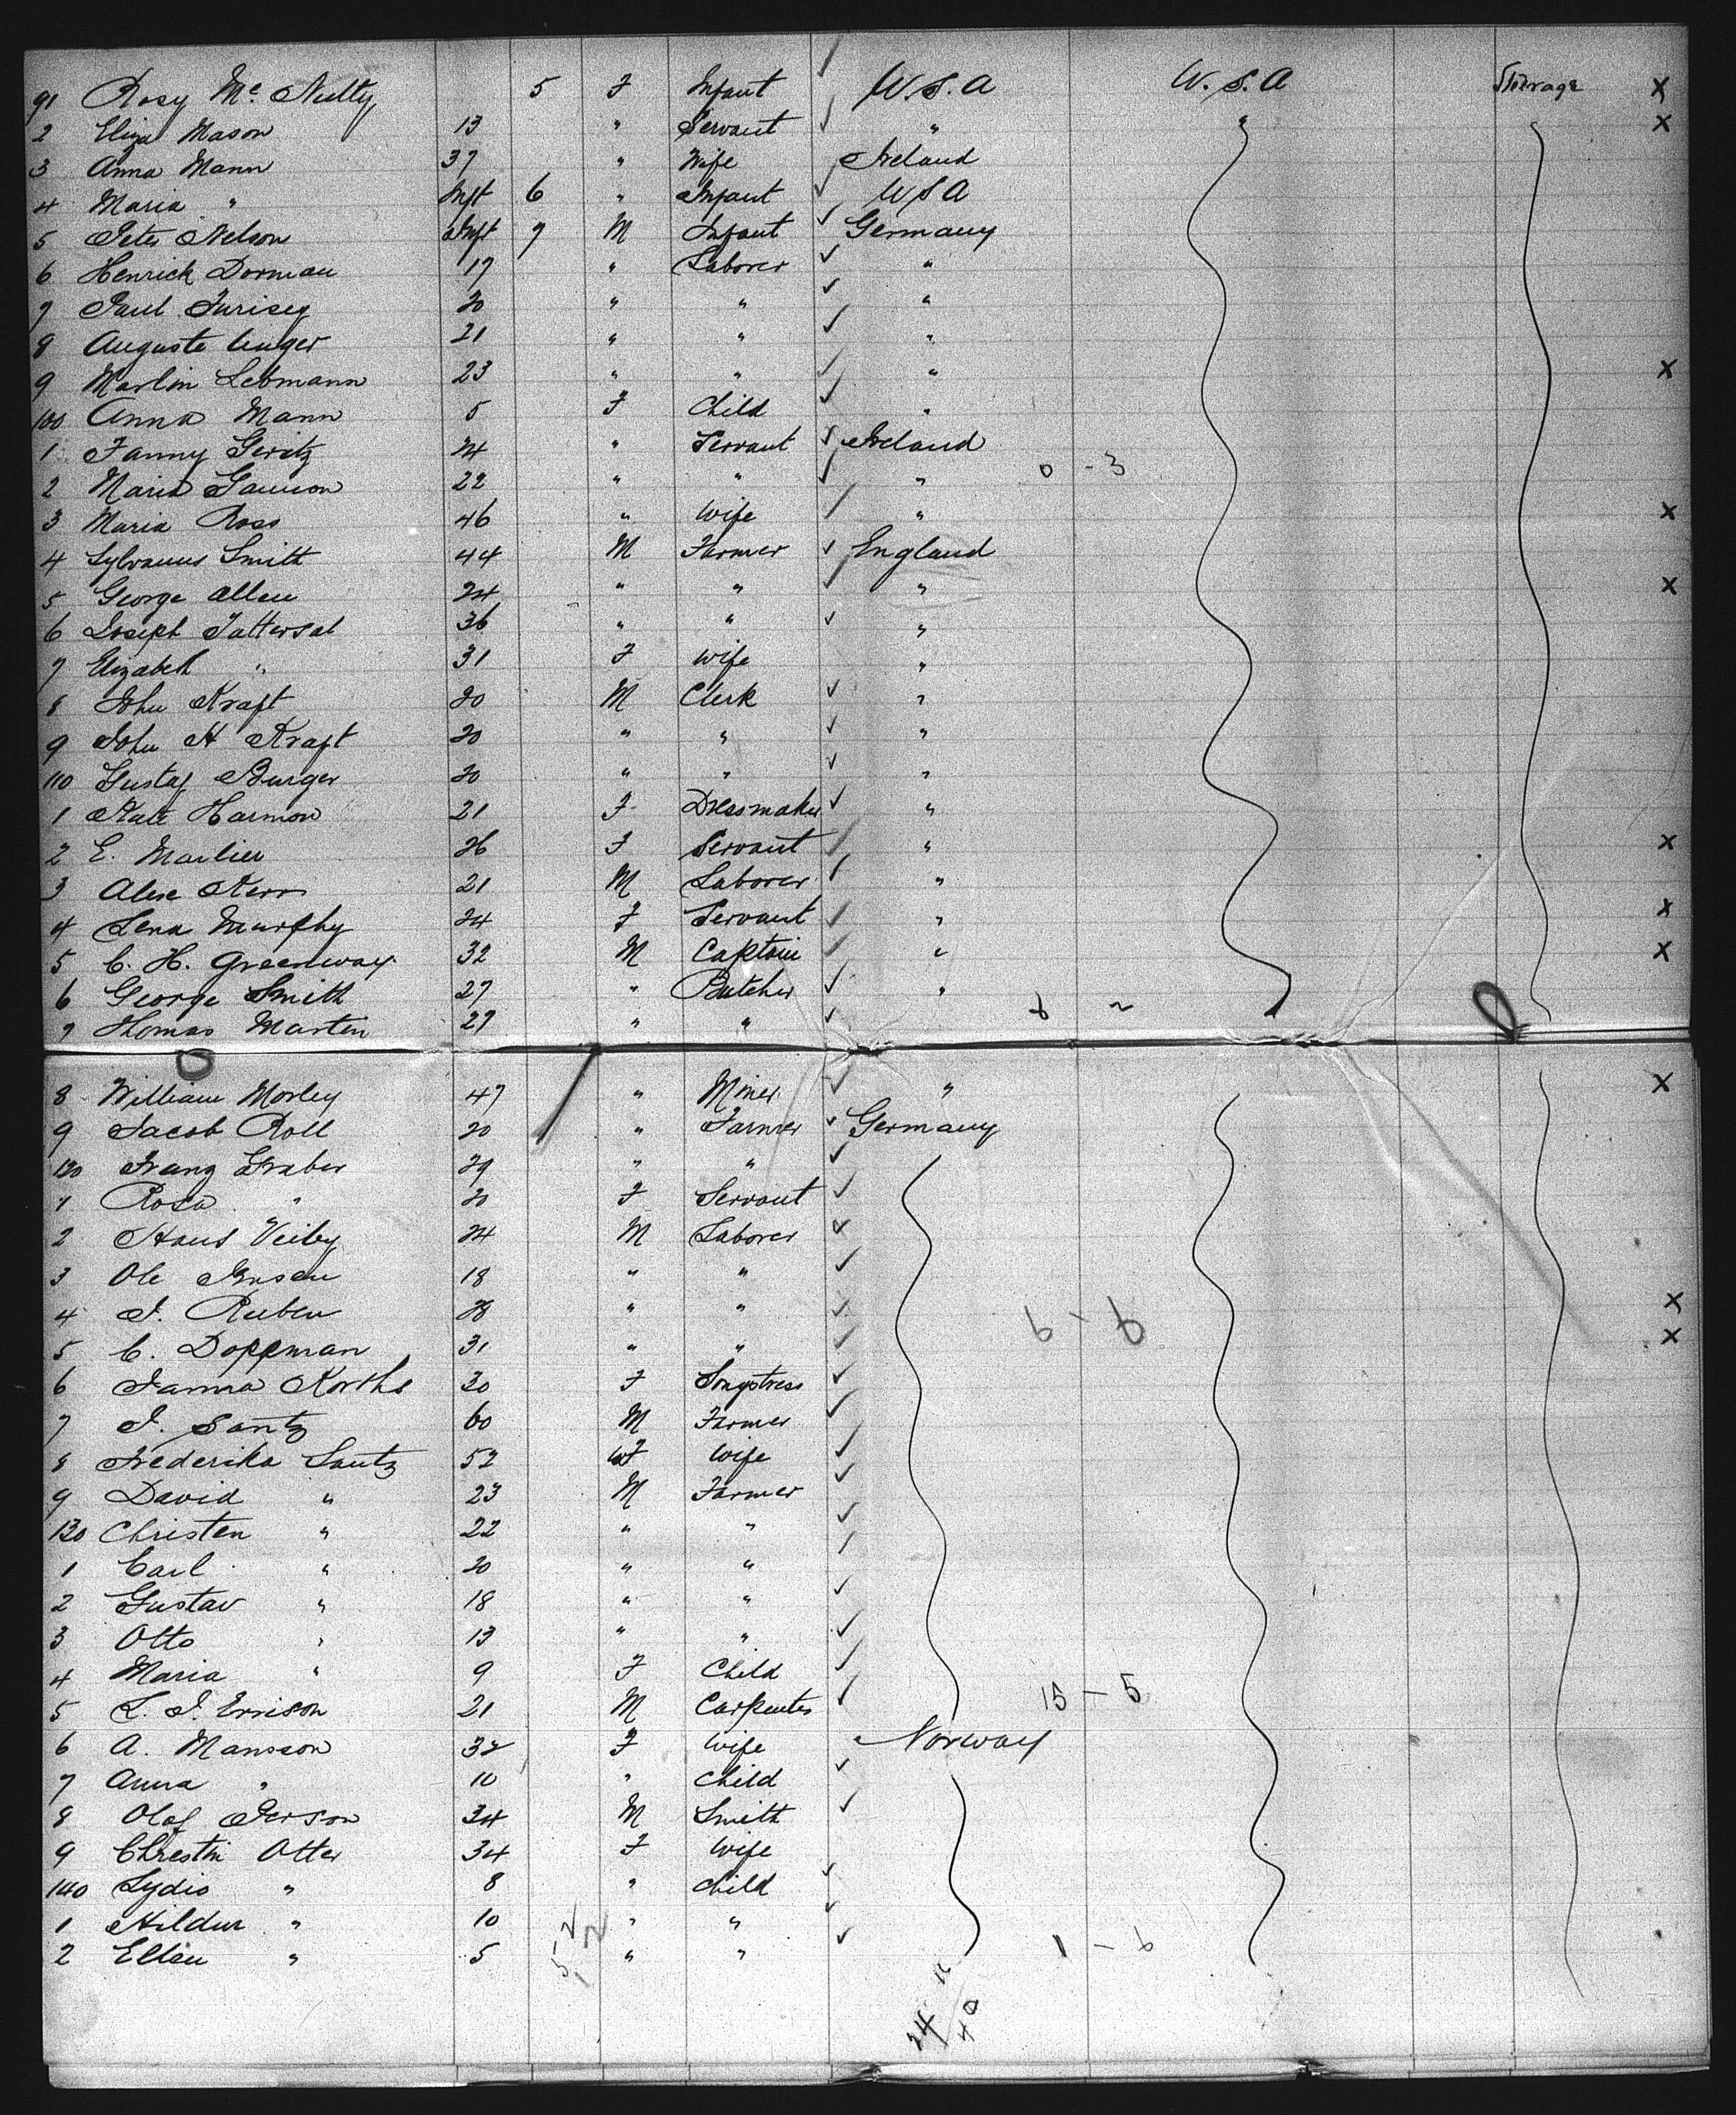 91 Rosy Mc Nulty 5 F Infant W.S.A W.S.A Steerage X
2 Eliza Mason 13 " Servant " " X
3 Anna Mann 37 " Wife Ireland
4 Maria " Inft 6 " Infant W S A
5 Peter Nelson Inft 9 M Infant Germany
6 Henrick Dorman 17 " Laborer "
7 Paul 20 " " "
8 Auguste Unger 21 " " "
9 Martin Lebmann 23 " " " X
100 Anna Mann 5 F Child "
1 Fanny Geritz 24 " Servant Ireland
2 Maria 22 " " " 0 - 3
3 Maria Ross 46 " Wife " X
4 Sylvanus Smith 44 M Farmer England
5 George Allen 24 " " " X
6 Joseph Tattersal 36 " " "
7 Elizabeth " 31 F Wife "
8 John Kraft 20 M Clerk "
9 John H Kraft 20 " " "
110 Gustaf Burger 20 " " "
1 Kate Harmon 21 F Dressmaker "
2 E. Marlier 26 F Servant " X
3 Alex Kerr 21 M Laborer "
4 Lena Murphy 24 F Servant " X
5 C. H. Greenway 32 M Captain " X
6 George Smith 27 " Butcher "
7 Thomas Martin 27 " " 6 2
8 William Morley 47 " Miner " X
9 Jacob Roll 20 " Farmer Germany
120 Franz Graber 29 " "
1 Rosa " 20 F Servant
2 Hans Veiby 24 M Laborer
3 Ole Jensen 18 " "
4 J. Reuben 28 " " X
6 - 6
5 C. Dopfman 31 " " X
6 Janna Korths 20 F Songstress
7 J. Santz 60 M Farmer
8 Frederika Santz 52 F Wife
9 David " 23 M Farmer
130 Christen " 22 " "
1 Carl " 20 " "
2 Gustav " 18 " "
3 Otto " 13 " "
4 Maria " 9 F Child
5 L. J. Errison 21 M Carpenter 15 - 5
6 A. Mansson 32 F Wife Norway
7 Anna " 10 " Child
8 Olof Person 34 M Smith
9 Christin Otter 34 F Wife
140 Lydio " 8 " Child
1 Hildur " 10 " "
2 Ellen " 5 " " 1 - 6